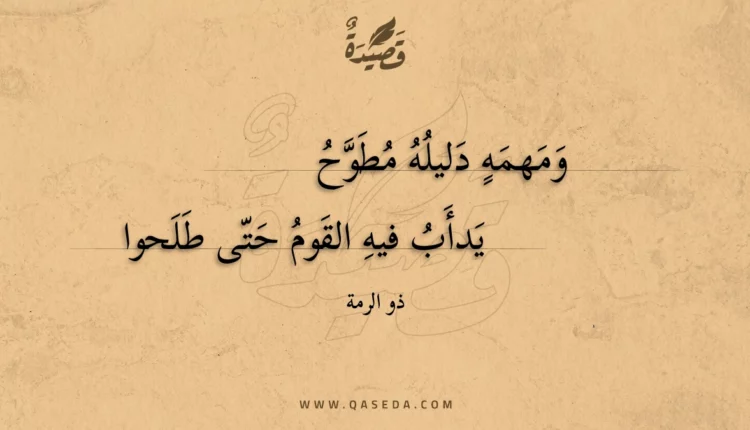 قَصِيدَةٌ
وَمَهمَهٍ دَليلُهُ مُطَوَّحُ
يَدأَبُ فيهِ القَومُ حَتّى طَلَحوا
ذو الرمة
WWW.QASEDA.COM